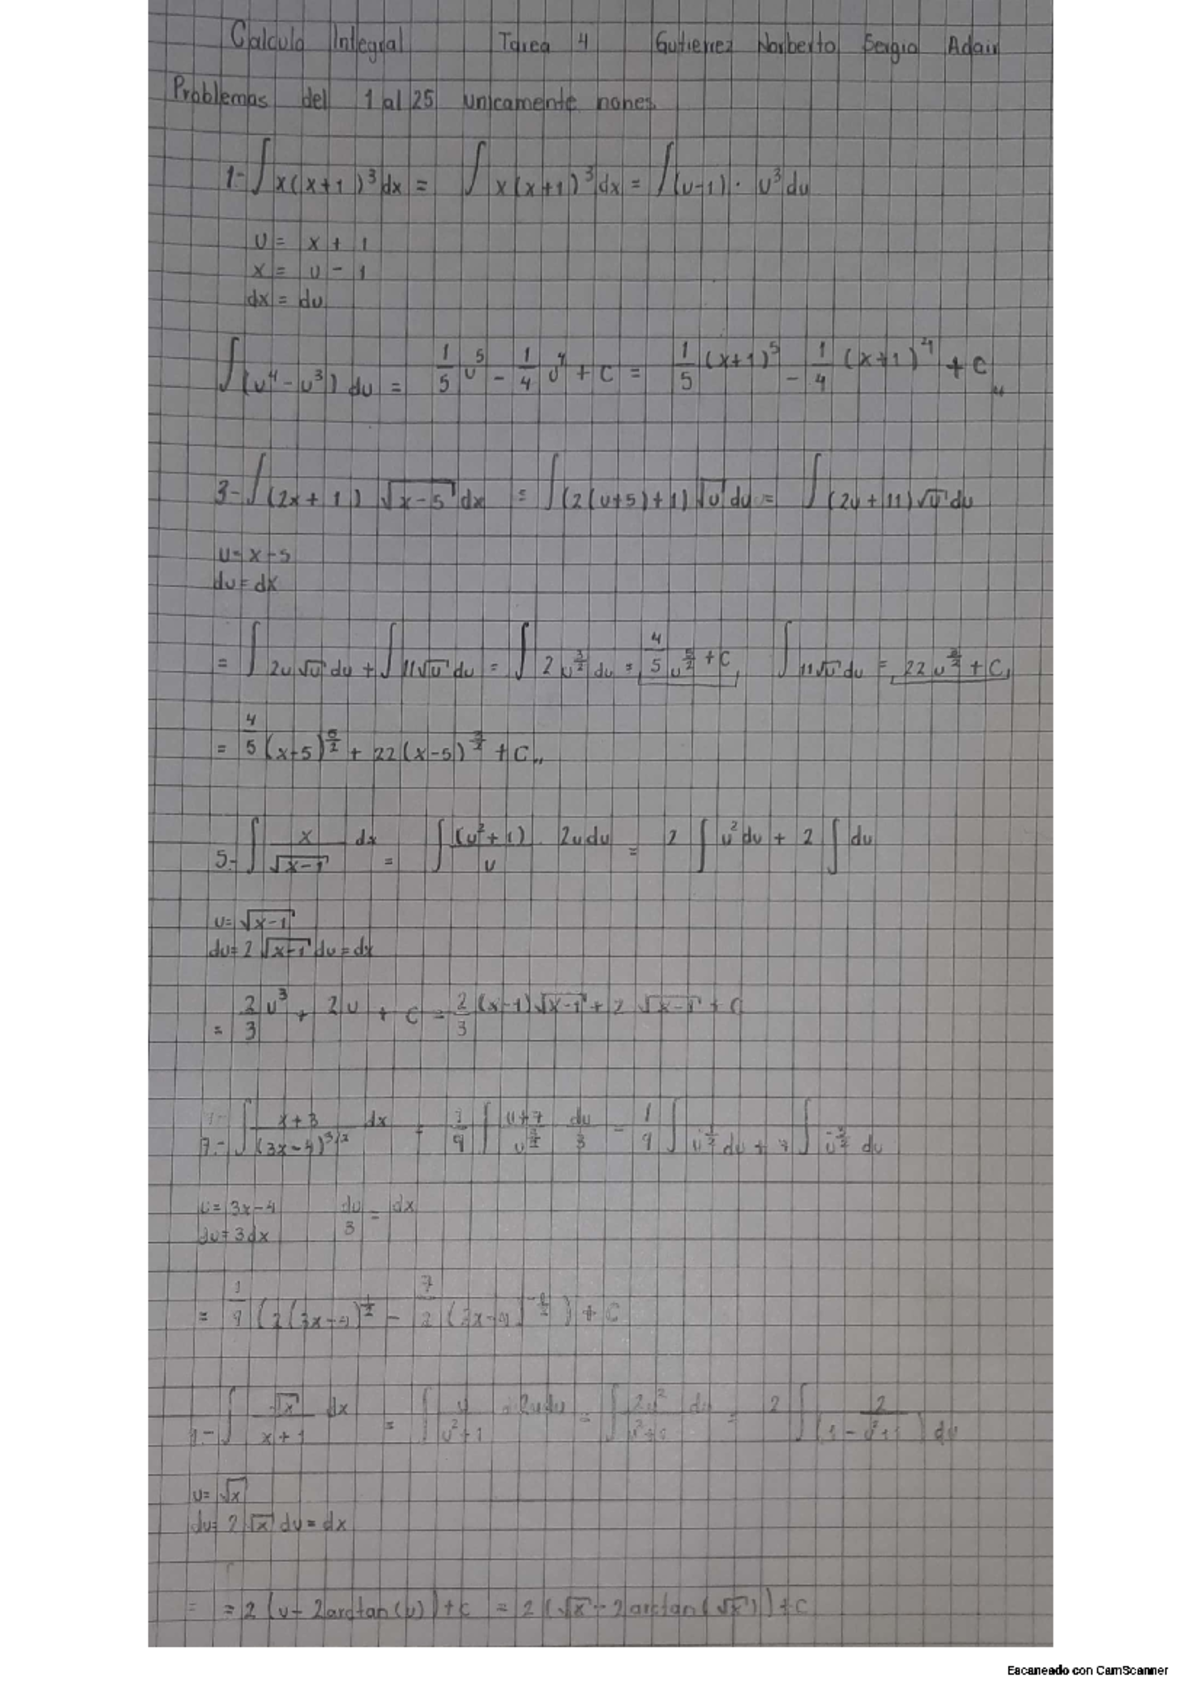 Calculo Integral Tarea 4 Gutierrez Norberto Sergio Adair
Problemas del 1 al 25 unicamente nones
1- ∫ x(x+1)³dx = ∫ x(x+1)³dx = ∫(u-1)· u³du
u = x + 1
x = u - 1
dx = du
∫(u⁴ - u³) du = 1/5 u⁵ - 1/4 u⁴ + C = 1/5 (x+1)⁵ - 1/4 (x+1)⁴ + C
3- ∫(2x + 1) √(x-5) dx = ∫(2(u+5)+1)√u du = ∫(2u+11)√u du
u = x-5
du = dx
= ∫ 2u√u du + ∫ 11√u du = ∫ 2 u^(3/2) du = 4/5 u^(5/2) + C, ∫ 11√u du = 22 u^(3/2) + C,
= 4/5 (x-5)^(5/2) + 22 (x-5)^(3/2) + C
5- ∫ x/√(x-1) dx = ∫ (u²+1)/u · 2u du = 2 ∫ u² du + 2 ∫ du
u = √(x-1)
du = 2 √(x-1) du = dx
= 2/3 u³ + 2u + C = 2/3 (x-1)√(x-1) + 2 √(x-1) + C
7- ∫ (x+3)/(3x-4)^(3/2) dx = 1/9 ∫ (u+7)/u^(3/2) du/3 = 1/9 ∫ u^(-1/2) du + 7 ∫ u^(-3/2) du
u = 3x-4 du/3 = dx
du = 3dx
= 1/9 (2(3x-4)^(1/2) - 7/2 (3x-4)^(-1/2)) + C
∫ √x/(x+1) dx = ∫ u/(u²+1) · 2u du = ∫ 2u²/(u²+1) du = 2 ∫ (1 - 2/(u²+1)) du
u = √x
du = 2 √x du = dx
= = 2 (u - 2arctan(u)) + C = 2 (√x - 2arctan(√x)) + C
Escaneado con CamScanner